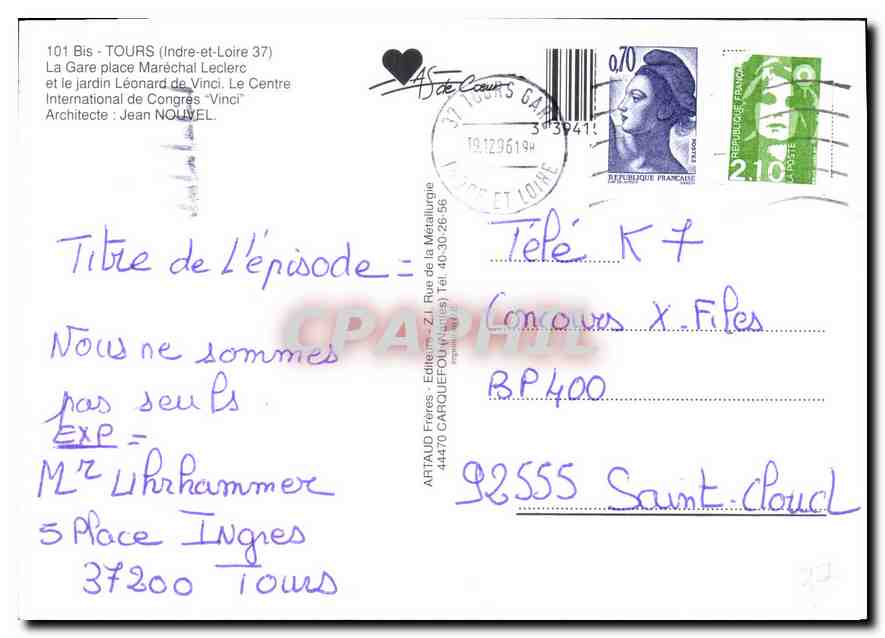 101 Bis - TOURS (Indre-et-Loire 37)
La Gare place Maréchal Leclerc
et le jardin Léonard de Vinci. Le Centre
International de Congrès "Vinci"
Architecte : Jean NOUVEL.
AS de Cœur
37 TOURS GARE
19.12.96 19H
INDRE ET LOIRE
3 39415
0,70
POSTES
RÉPUBLIQUE FRANÇAISE
RÉPUBLIQUE FRANÇ
2,10
LA POSTE
Titre de l'épisode =
Nous ne sommes
pas seuls
EXP =
Mr Uhrhammer
5 Place Ingres
37200 Tours
ARTAUD Frères - Editeurs - Z.I. Rue de la Métallurgie
44470 CARQUEFOU (Nantes) Tél. 40-30-26-56
Télé K 7
Concours X-Files
BP 400
92555 Saint-Cloud
CPAPHIL